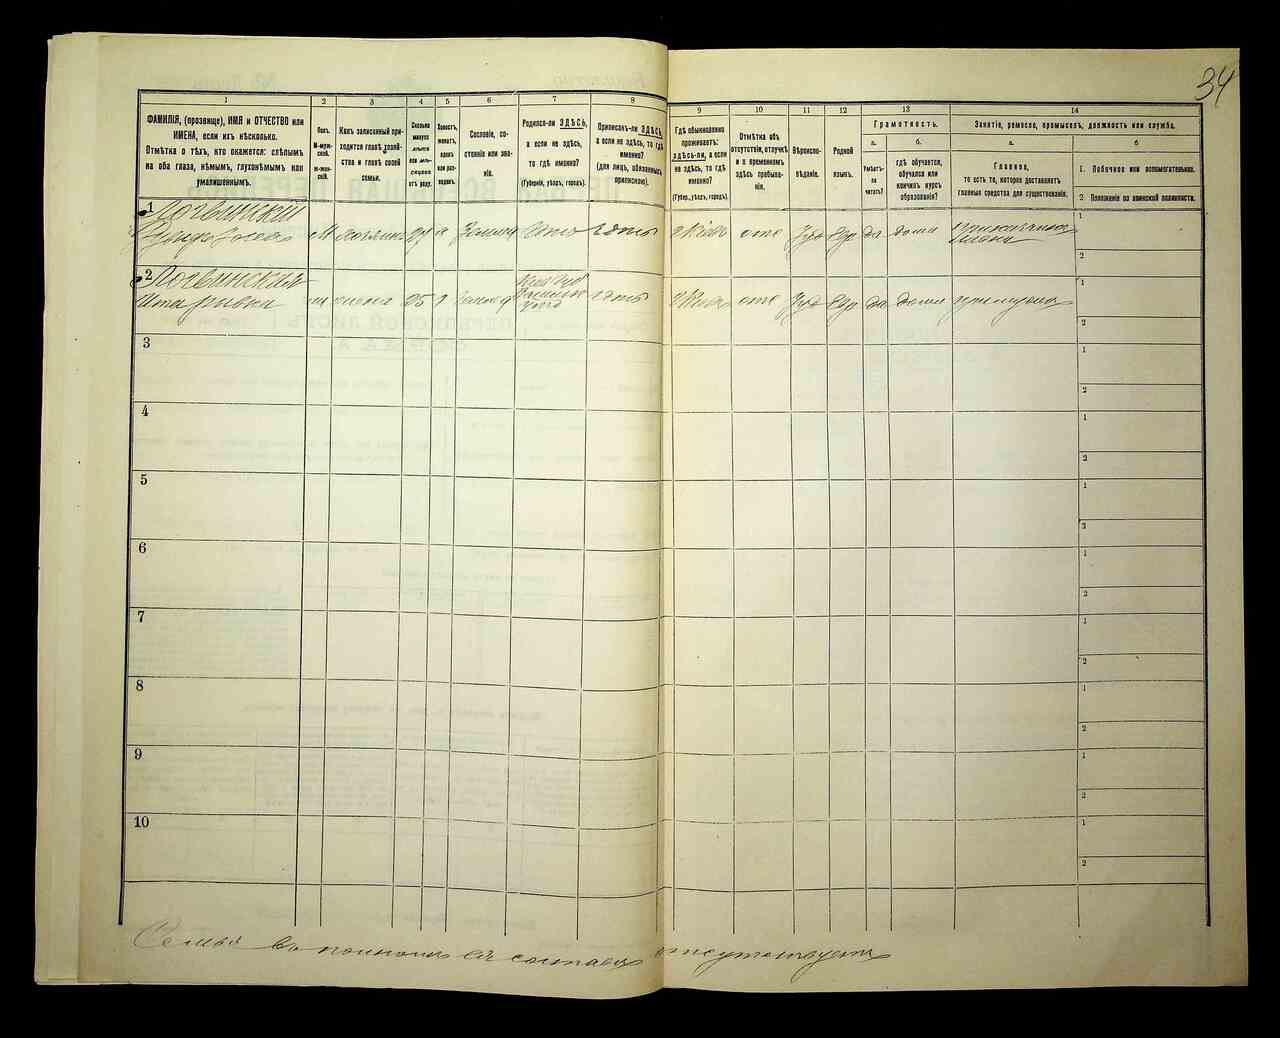 34
1 2 3 4 5 6 7 8 9 10 11 12 13 14
ФАМИЛІЯ, (прозвище), ИМЯ и ОТЧЕСТВО или
ИМЕНА, если ихъ нѣсколько.
Отмѣтка о тѣхъ, кто окажется: слѣпымъ
на оба глаза, нѣмымъ, глухонѣмымъ или
умалишеннымъ.
Полъ.
М-муж-
ской.
Ж-жен-
скій.
Какъ записанный при-
ходится главѣ хозяй-
ства и главѣ своей
семьи.
Сколько
минуло
лѣтъ
или мѣ-
сяцевъ
отъ роду.
Холостъ,
женатъ,
вдовъ
или раз-
веденъ.
Сословіе, со-
стояніе или зва-
ніе.
Родился-ли ЗДѢСЬ,
а если не здѣсь,
то гдѣ именно?
(Губернія, уѣздъ, городъ).
Приписанъ-ли ЗДѢСЬ,
а если не здѣсь, то гдѣ
именно?
(для лицъ, обязанныхъ
припискою).
Гдѣ обыкновенно
проживаетъ:
здѣсь-ли, а если
не здѣсь, то гдѣ
именно?
(Губер., уѣздъ, городъ).
Отмѣтка объ
отсутствіи, отлучкѣ
и о временномъ
здѣсь пребыва-
ніи.
Вѣроиспо-
вѣданіе.
Родной
языкъ.
Грамотность.
а. б.
Умѣетъ-
ли
читать?
гдѣ обучается,
обучался или
кончилъ курсъ
образованія?
Занятіе, ремесло, промыселъ, должность или служба.
а. б
Главное,
то есть то, которое доставляетъ
главныя средства для существованія.
1. Побочное или вспомогательное.
2 Положеніе по воинской повинности.
1 Логвинскій
М 29 Кіевъ отс Іуд Евр да дома
1
2
2 Логвинская
Ита Ривка жена 25 Кіев губ Кіевъ отс Іуд Евр да дома при мужѣ
1
2
3
1
2
4
1
2
5
1
2
6
1
2
7
1
2
8
1
2
9
1
2
10
1
2
Семья въ полномъ ея составѣ отсутствуетъ